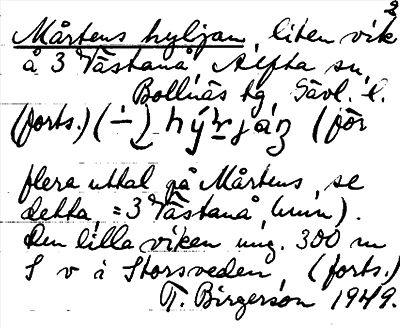 2
Mårtens hyljan, liten vik
å 3 Västanå Alfta sn,
Bollnäs tg, Gävl. l.
(forts.) (–) (för
flera uttal på Mårtens, se
detta, = 3 Västanå, (min).
Den lilla viken ung. 300 m
S v å Storsveden, (forts.)
T. Birgerson 1949.